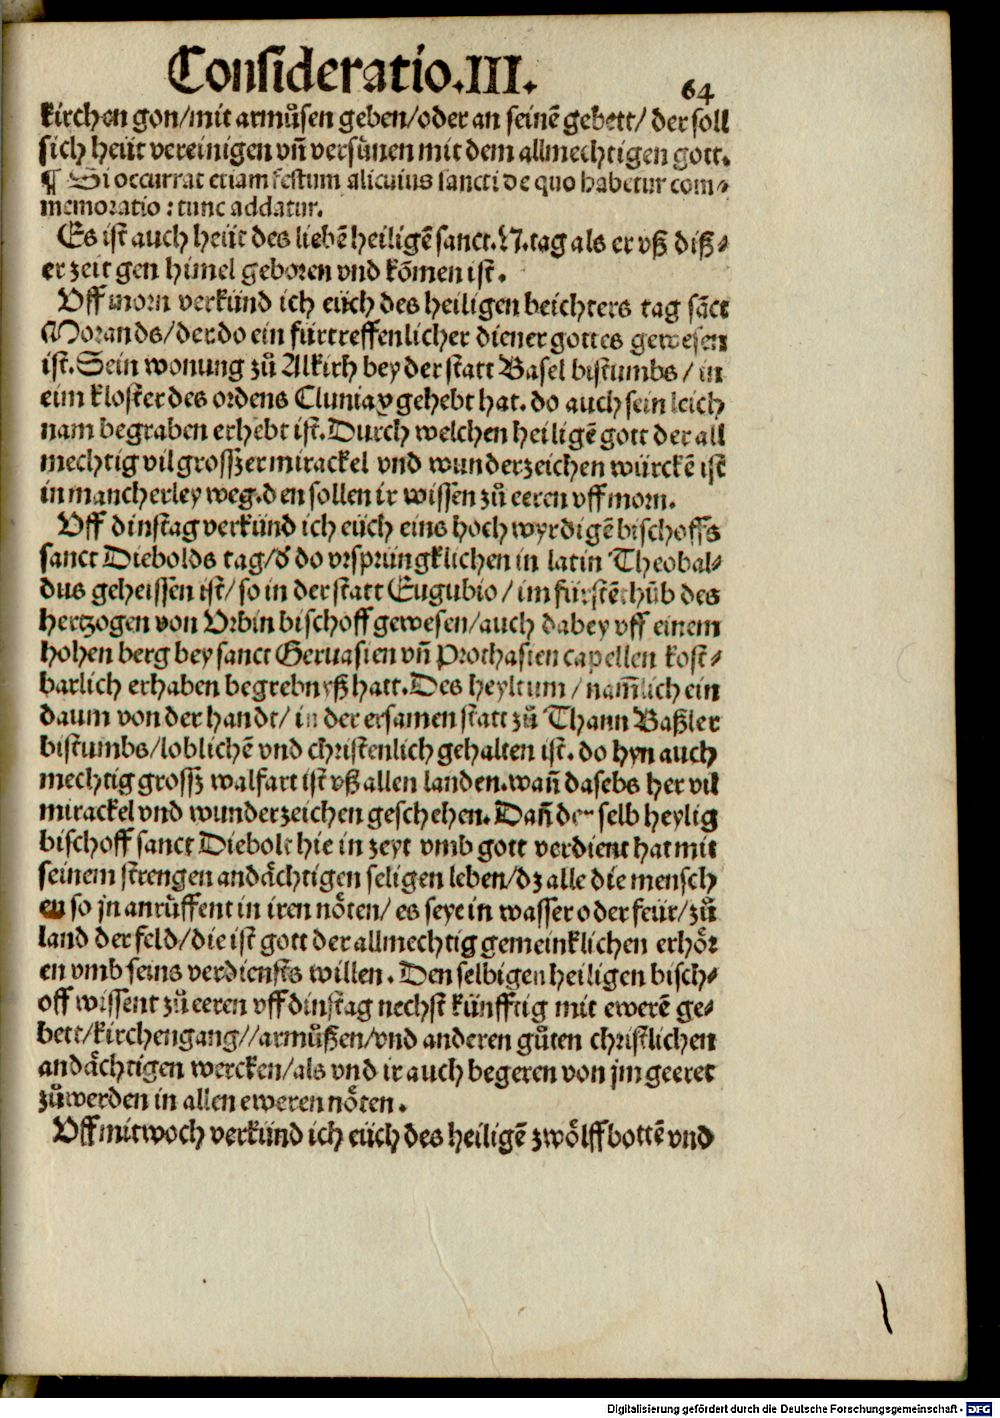 Consideratio.III.
64
kirchen gon/mit armůsen geben/oder an seinē gebett/ der soll
sich heüt vereinigen vñ versünen mit dem allmechtigen gott.
¶ Si occurrat etiam festum alicuius sancti de quo habetur com-
memoratio: tunc addatur.
Es ist auch heüt des liebē heiligē sanct.N.tag als er vß diß-
er zeit gen himel geboren vnd kōmen ist.
Uff morn verkünd ich eüch des heiligen beichters tag sāct
Morands/der do ein fürtreffenlicher diener gottes gewesen
ist. Sein wonung zů Alkirh bey der statt Basel bistumbs/ in
eim kloster des ordens Cluniay gehebt hat. do auch sein leich
nam begraben erhebt ist. Durch welchen heiligē gott der all
mechtig vil grosszer mirackel vnd wunderzeichen würckē ist
in mancherley weg. den sollen ir wissen zů eeren vff morn.
Uff dinstag verkünd ich eüch eins hoch wyrdigē bischoffs
sanct Diebolds tag/ď do vrsprungklichen in latin Theobal-
dus geheissen ist/ so in der statt Eugubio/ im fürstēthůb des
hertzogen von Vrbin bischoff gewesen/auch dabey vff einem
hohen berg bey sanct Geruasien vñ Prothasien capellen kost-
barlich erhaben begrebnyß hatt. Des heyltum/ nam̄lich ein
daum von der handt/ in der ersamen statt zů Thann Baßler
bistumbs/loblichē vnd christenlich gehalten ist. do hyn auch
mechtig grossz walfart ist vß allen landen. wañ dasebs her vil
mirackel vnd wunderzeichen geschehen. Dañ der selb heylig
bischoff sanct Diebolt hie in zeyt vmb gott verdient hat mit
seinem strengen andächtigen seligen leben/dz alle die mensch
en so jn anrüffent in iren nöten/ es seye in wasser oder feür/zů
land der feld/die ist gott der allmechtig gemeinklichen erhör
en vmb seins verdiensts willen. Den selbigen heiligen bisch-
off wissent zů eeren vff dinstag nechst künfftig mit ewerē ge-
bett/kirchengang//armůßen/vnd anderen gůten christlichen
andächtigen wercken/als vnd ir auch begeren von jm geeret
zůwerden in allen eweren nöten.
Uff mitwoch verkünd ich eüch des heiligē zwölffbottē vnd
Digitalisierung gefördert durch die Deutsche Forschungsgemeinschaft - DFG